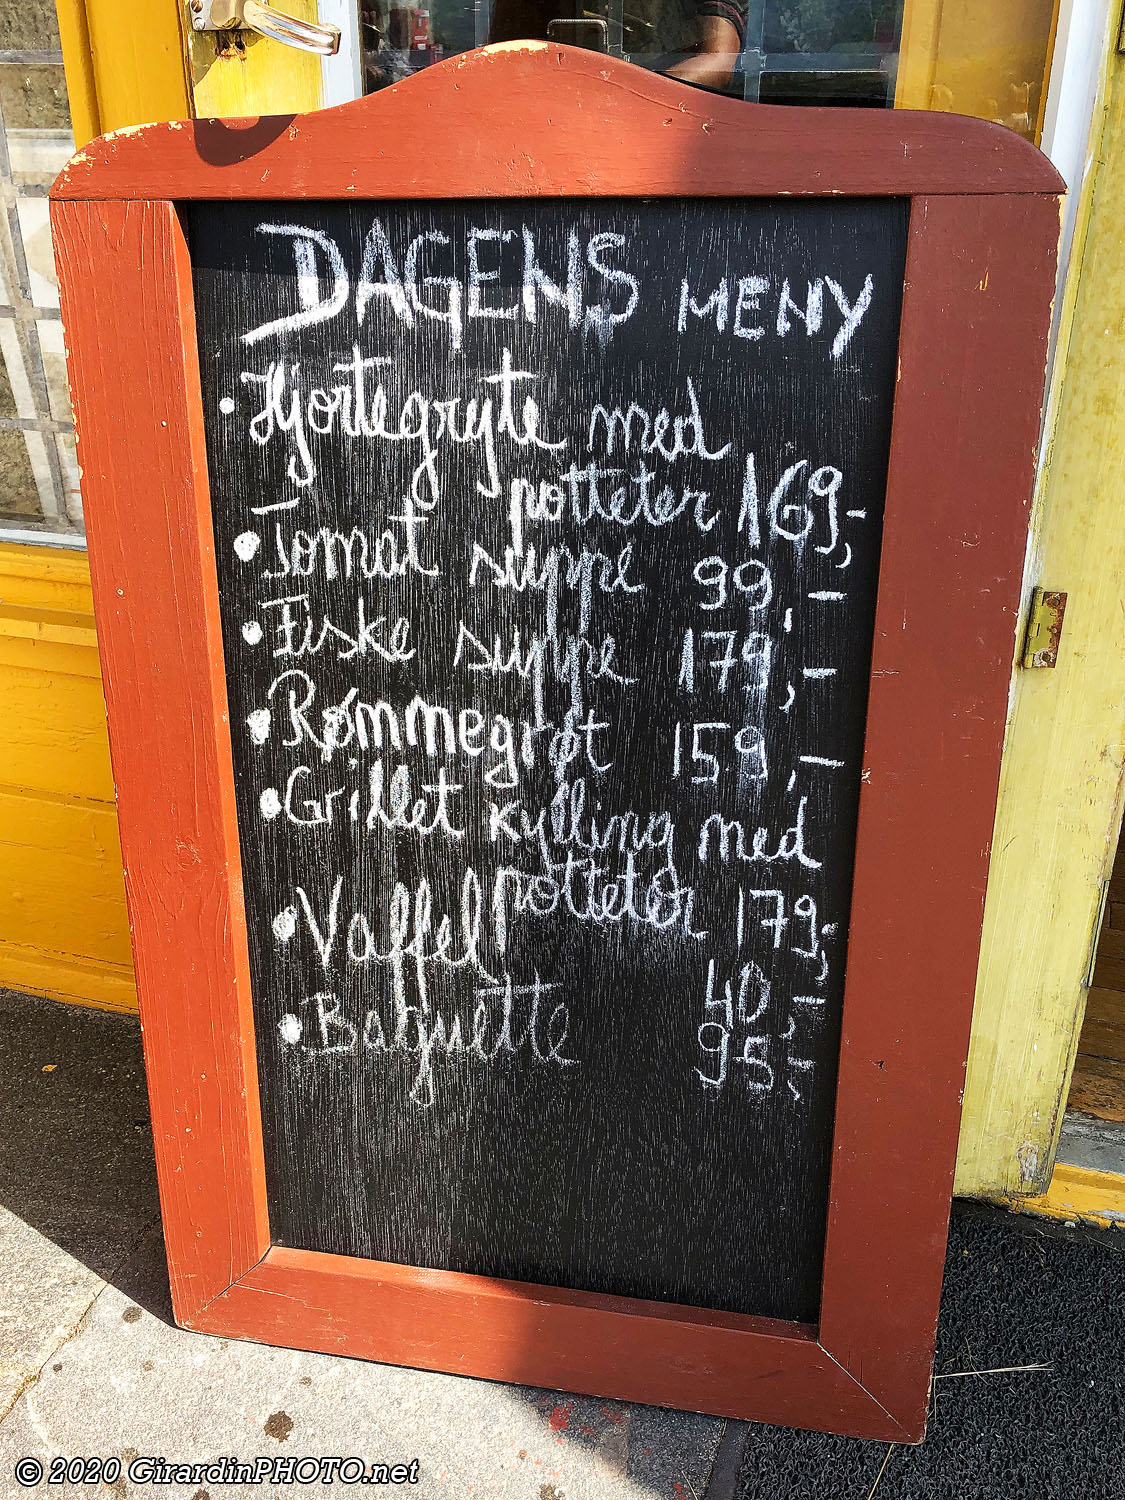 DAGENS MENY
• Hjortegryte med
potteter 169,-
• Tomat suppe 99,-
• Fiske suppe 179,-
• Rømmegrøt 159,-
• Grillet kylling med
potteter 179,-
• Vaffel 40,-
• Baguette 95,-
© 2020 GirardinPHOTO.net